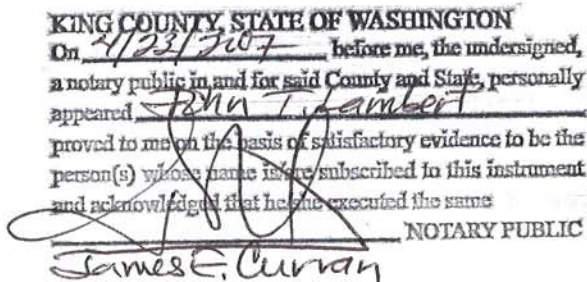 KING COUNTY, STATE OF WASHINGTON
On 4/23/2007 before me, the undersigned,
a notary public in and for said County and State, personally
appeared John T. Lambert
proved to me on the basis of satisfactory evidence to be the
person(s) whose name is/are subscribed to this instrument
and acknowledged that he/she executed the same
NOTARY PUBLIC
James E. Curran